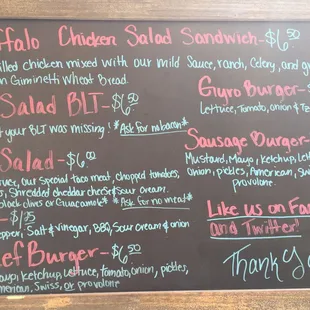 ffalo Chicken Salad Sandwich-$6.50
illed chicken mixed with our mild Sauce, ranch, Celery, and
on Giminetti Wheat Bread.
Salad BLT-$6.50
your BLT was missing! *Ask for no bacon*
Salad-$6.00
our Special taco meat, chopped tomatoes,
Shredded cheddar cheese & Sour Cream.
black olives or Guacamole* *Ask for no meat*
-$1.25
epper, Salt & Vinegar, BBQ, Sour cream & onion
ef Burger-$6.50
ketchup, Lettuce, tomato, onion, pickles,
merican, Swiss, or provolone
Gyro Burger-$
Lettuce, Tomato, onion & Tz
Sausage Burger-
Mustard, Mayo, Ketchup, Let
onion, pickles, American, Sw
provolone.
Like us on Fa
and Twitter!
Thank Yo